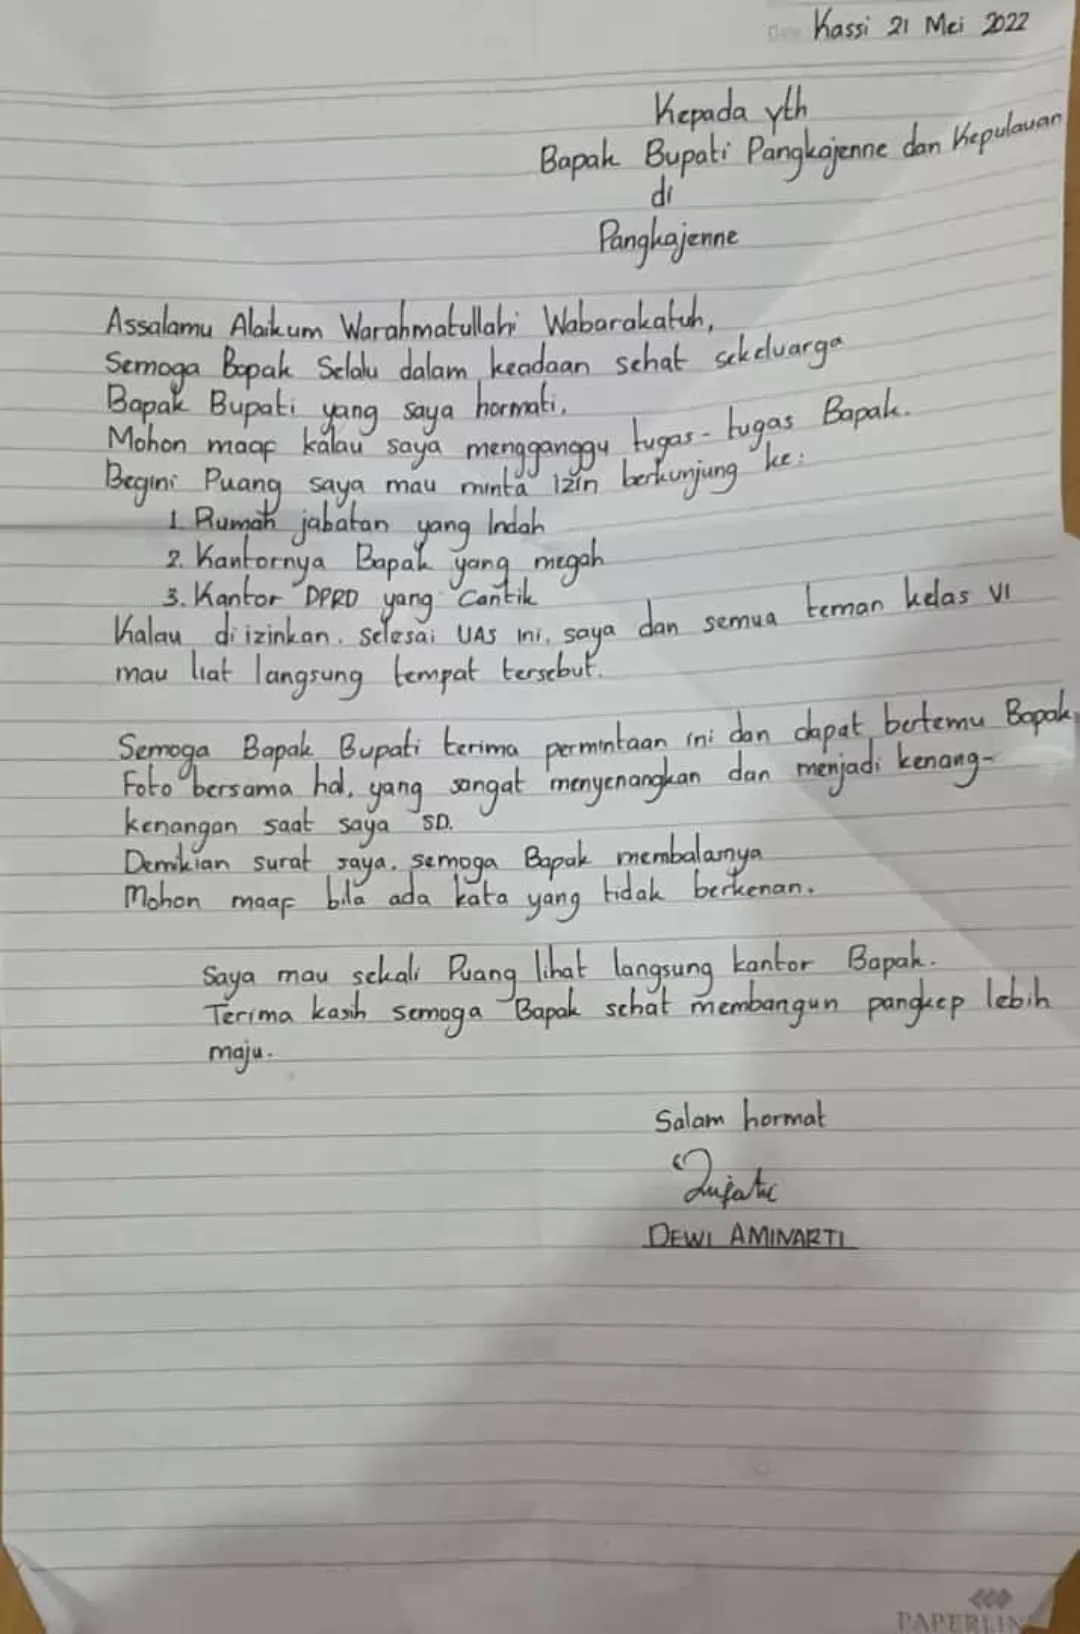 Kassi 21 Mei 2022
Kepada yth
Bapak Bupati Pangkajenne dan Kepulauan
di
Pangkajenne
Assalamu Alaikum Warahmatullahi Wabarakatuh,
Semoga Bapak Selalu dalam keadaan sehat sekeluarga
Bapak Bupati yang saya hormati,
Mohon maaf kalau saya mengganggu tugas-tugas Bapak.
Begini Puang saya mau minta izin berkunjung ke:
1. Rumah jabatan yang Indah
2. Kantornya Bapak yang megah
3. Kantor DPRD yang Cantik
Kalau diizinkan. selesai UAS ini, saya dan semua teman kelas VI
mau liat langsung tempat tersebut.
Semoga Bapak Bupati terima permintaan ini dan dapat bertemu Bapak,
Foto bersama hal, yang sangat menyenangkan dan menjadi kenang-
kenangan saat saya SD.
Demikian surat saya. semoga Bapak membalasnya
Mohon maaf bila ada kata yang tidak berkenan.
Saya mau sekali Puang lihat langsung kantor Bapak.
Terima kasih semoga Bapak sehat membangun pangkep lebih
maju.
Salam hormat
DEWI AMINARTI